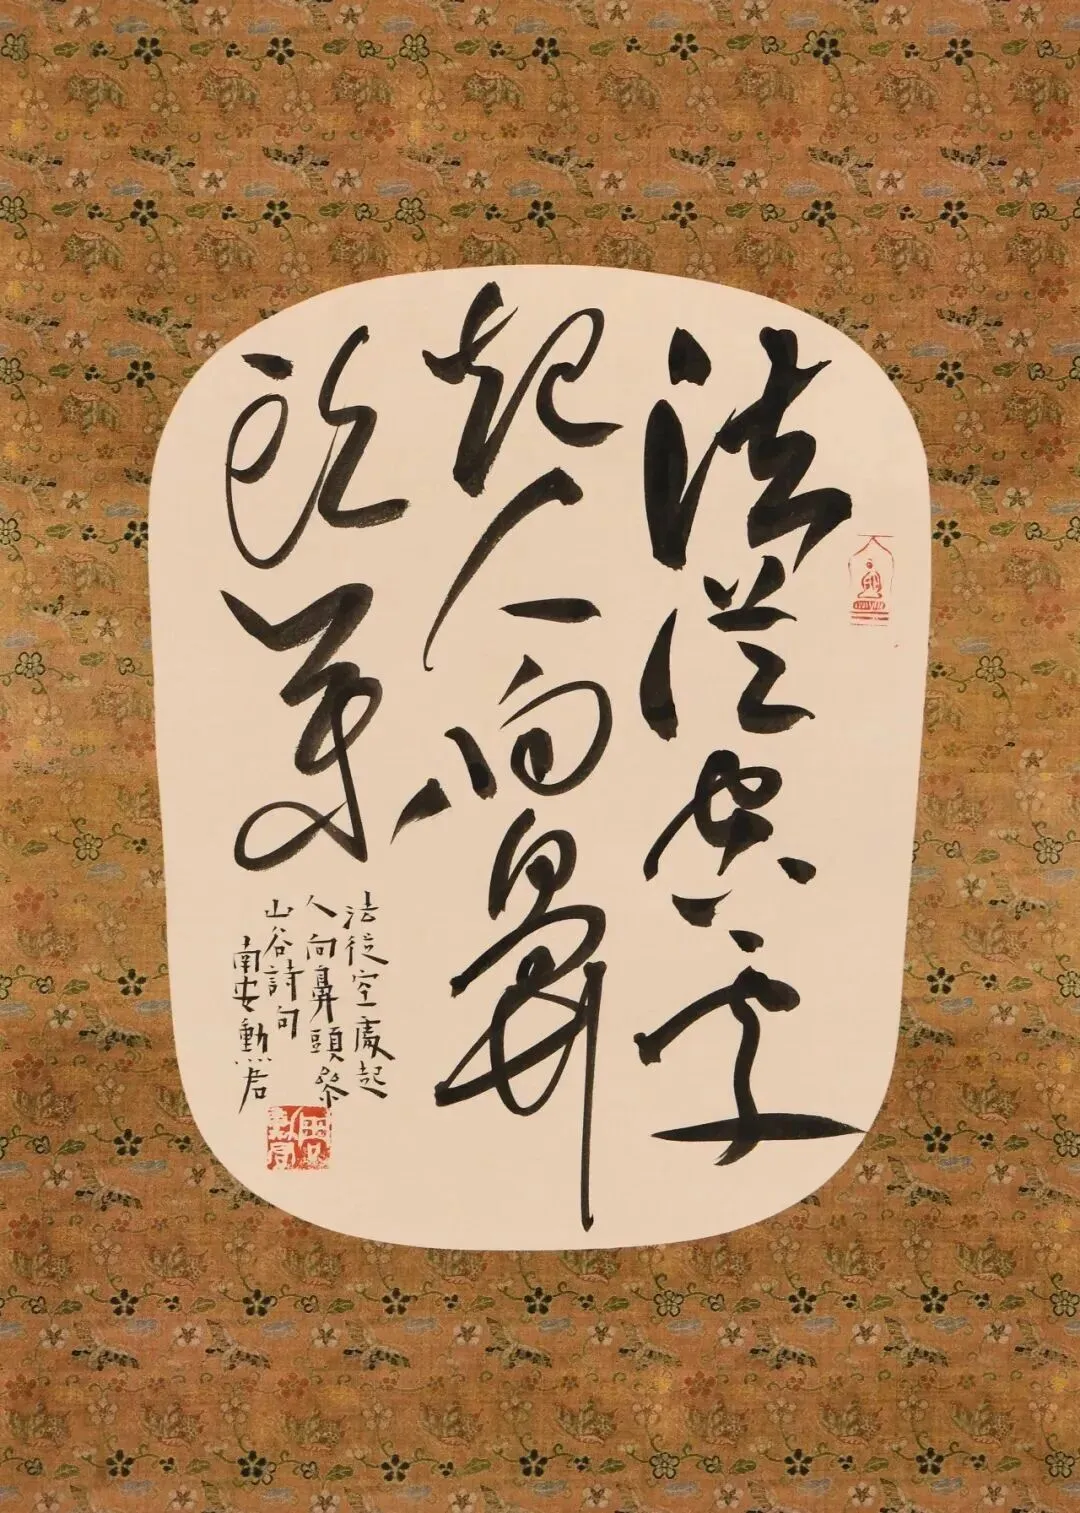 法從空處
起人向鼻
頭參
法從空處起
人向鼻頭參
山谷詩句
南安勳君